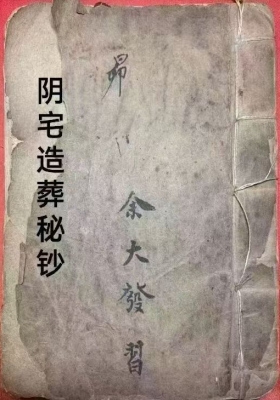 阴宅造葬秘钞
余大發習